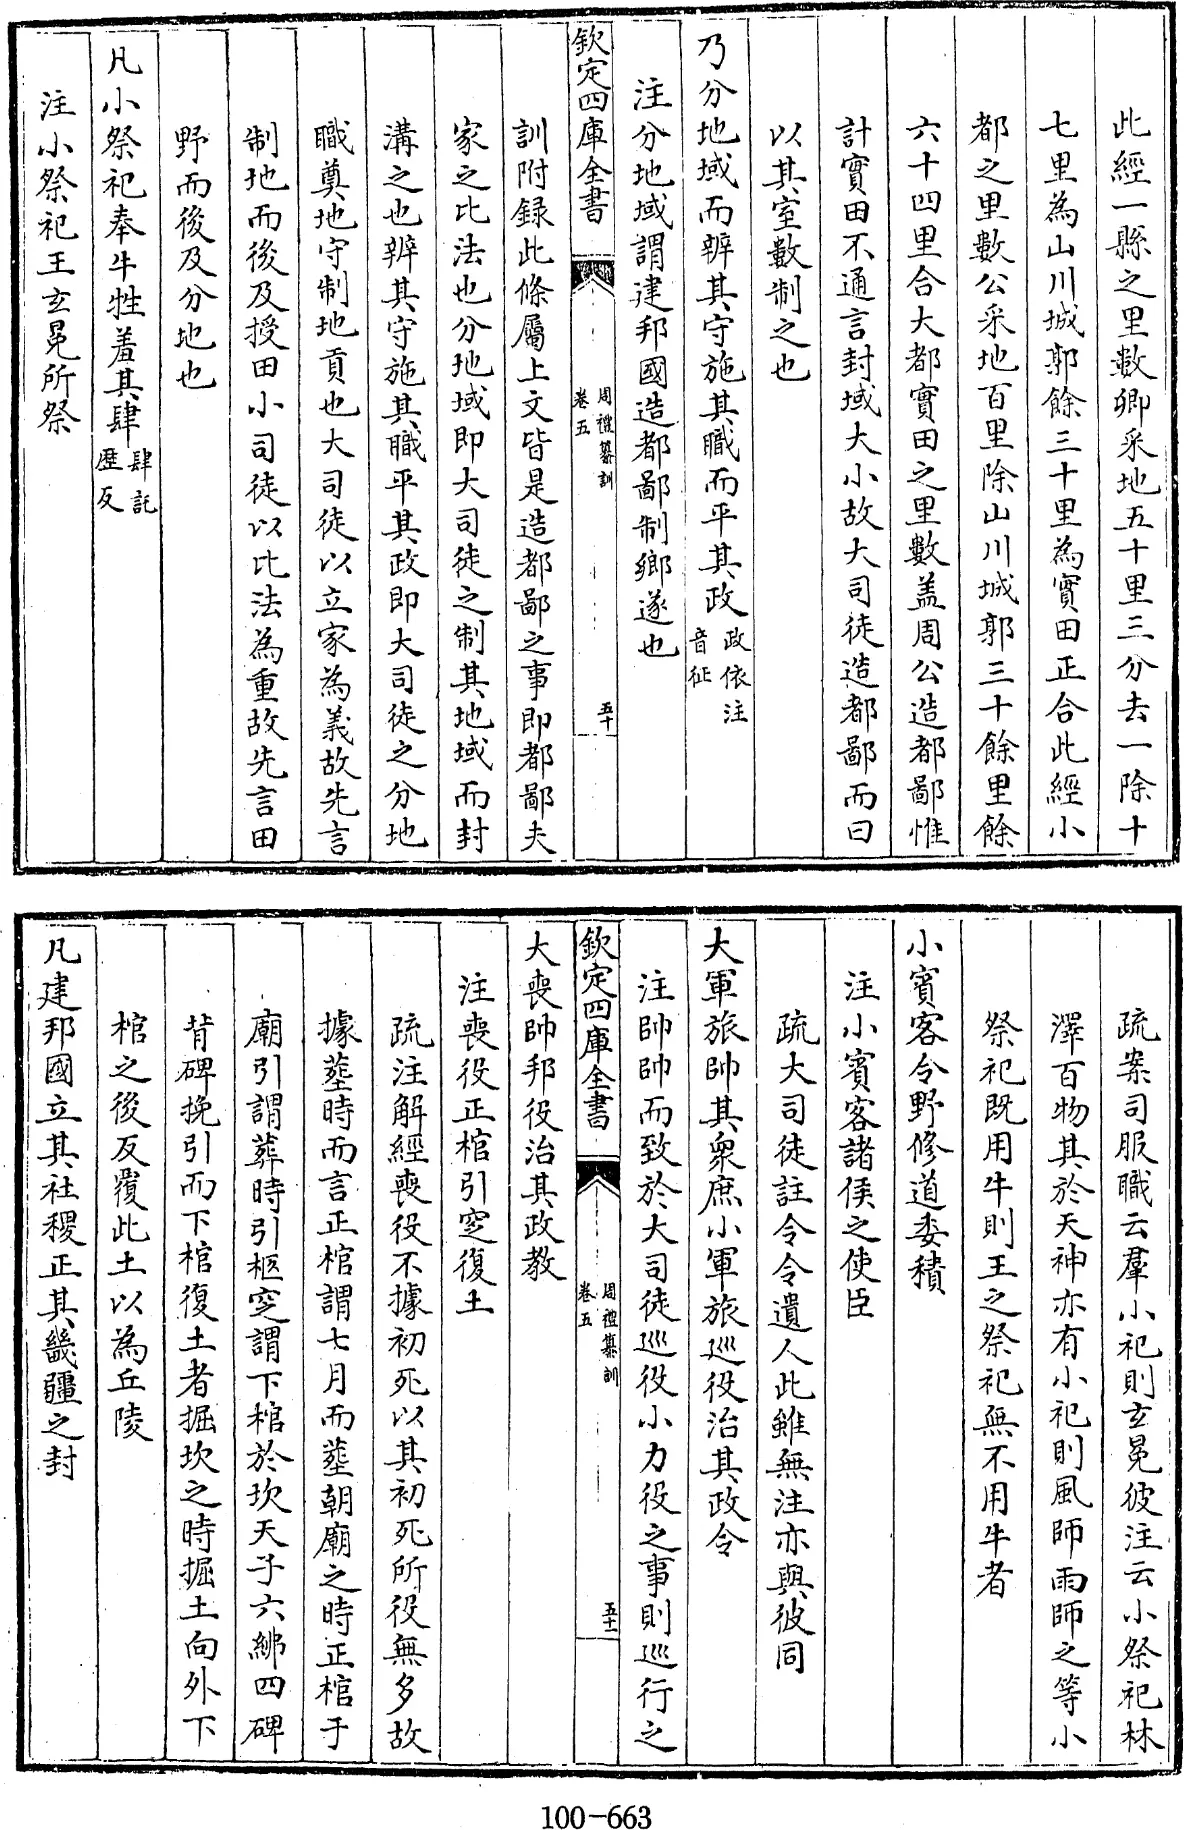 此經一縣之里數卿采地五十里三分去一除十
七里為山川城郭餘三十里為實田正合此經小
都之里數公采地百里除山川城郭三十餘里餘
六十四里合大都實田之里數盖周公造都鄙惟
計實田不通言封域大小故大司徒造都鄙而曰
以其室數制之也
乃分地域而辨其守施其職而平其政政依注音征
注分地域謂建邦國造都鄙制鄉遂也
欽定四庫全書
周禮纂訓
卷五
五十
訓附録此條屬上文皆是造都鄙之事即都鄙夫
家之比法也分地域即大司徒之制其地域而封
溝之也辨其守施其職平其政即大司徒之分地
職奠地守制地貢也大司徒以立家為義故先言
制地而後及授田小司徒以比法為重故先言田
野而後及分地也
凡小祭祀奉牛牲羞其肆肆託歷反
注小祭祀王玄冕所祭
疏案司服職云羣小祀則玄冕彼注云小祭祀林
澤百物其於天神亦有小祀則風師雨師之等小
祭祀既用牛則王之祭祀無不用牛者
小賓客令野修道委積
注小賓客諸侯之使臣
疏大司徒註令令遺人此雖無注亦與彼同
大軍旅帥其衆庶小軍旅巡役治其政令
注帥帥而致於大司徒巡役小力役之事則巡行之
欽定四庫全書
周禮纂訓
卷五
五十一
大喪帥邦役治其政教
注喪役正棺引窆復土
疏注解經喪役不據初死以其初死所役無多故
據塟時而言正棺謂七月而塟朝廟之時正棺于
廟引謂葬時引柩窆謂下棺於坎天子六綍四碑
背碑挽引而下棺復土者掘坎之時掘土向外下
棺之後反覆此土以為丘陵
凡建邦國立其社稷正其畿疆之封
100-663